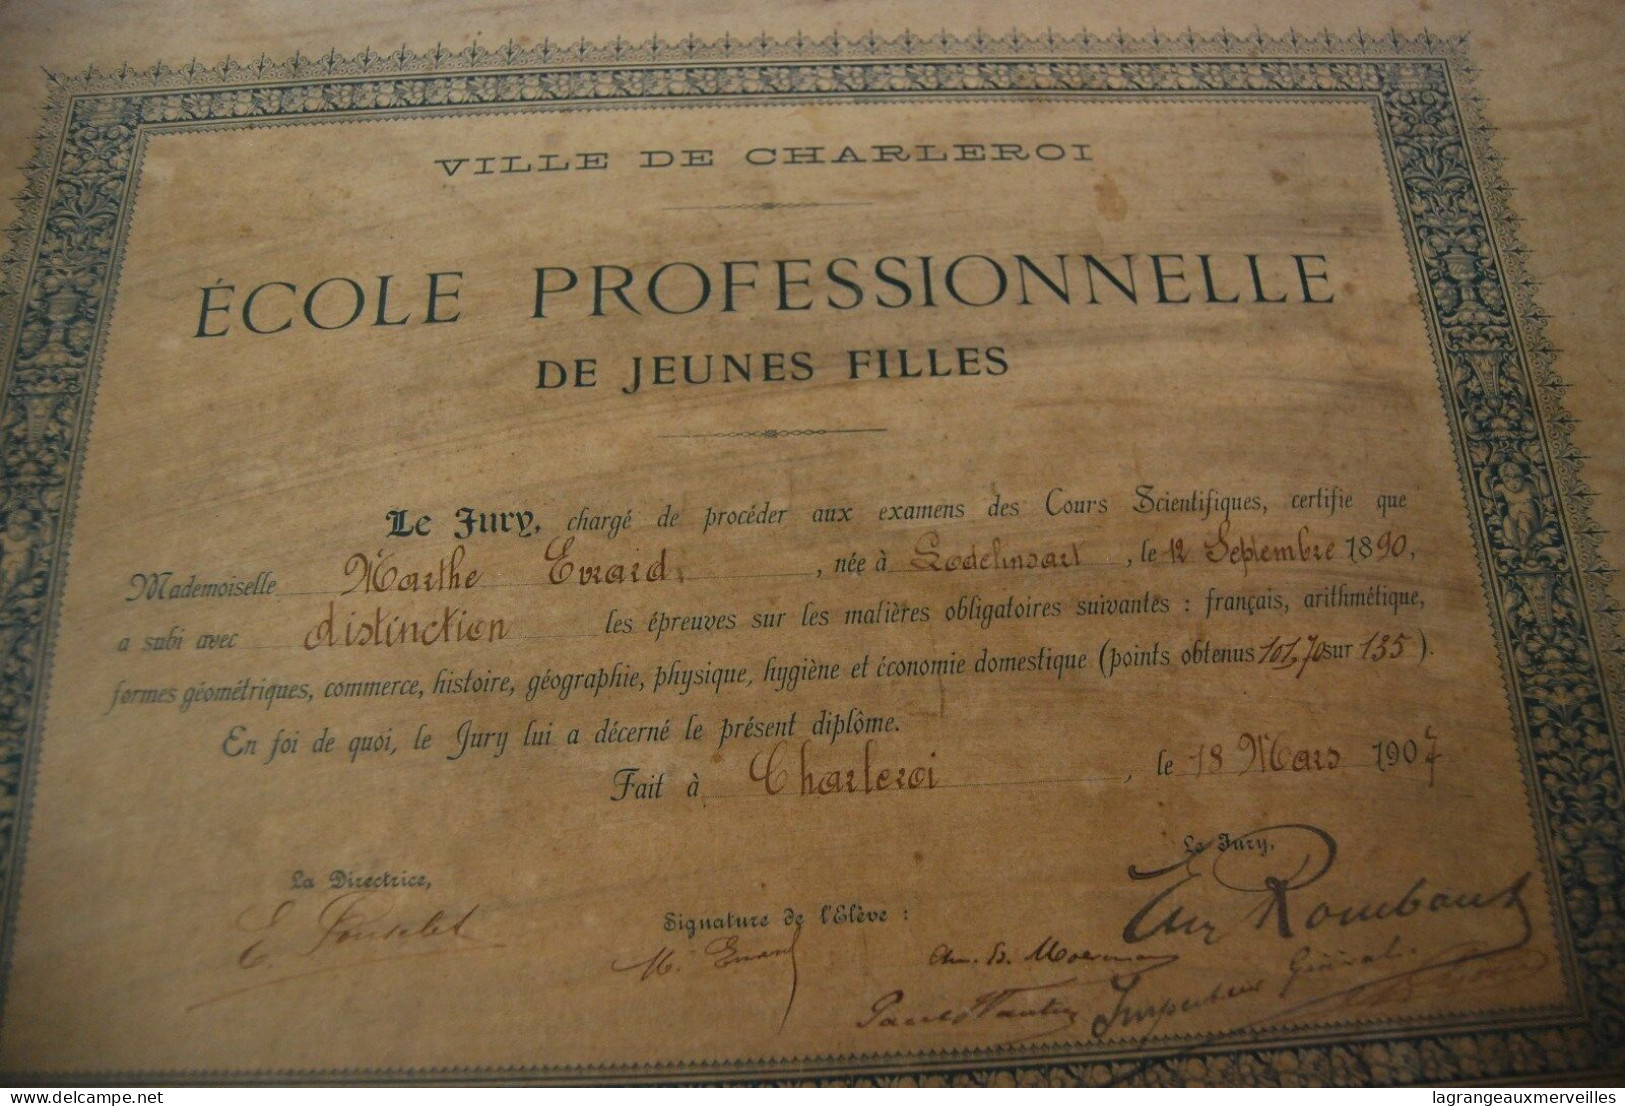 VILLE DE CHARLEROI
ÉCOLE PROFESSIONNELLE
DE JEUNES FILLES
Le Jury, chargé de procéder aux examens des Cours Scientifiques, certifie que
Mademoiselle Marthe Evrard, née à Lodelinsart, le 12 Septembre 1890,
a subi avec distinction les épreuves sur les matières obligatoires suivantes : français, arithmétique,
formes géométriques, commerce, histoire, géographie, physique, hygiène et économie domestique (points obtenus 101,70 sur 135).
En foi de quoi, le Jury lui a décerné le présent diplôme.
Fait à Charleroi, le 18 Mars 1907
Le Jury,
La Directrice,
Signature de l'Elève :
Rombaut
M. Evrard
Inspecteur Général.
delcampe.net
lagrangeauxmerveilles